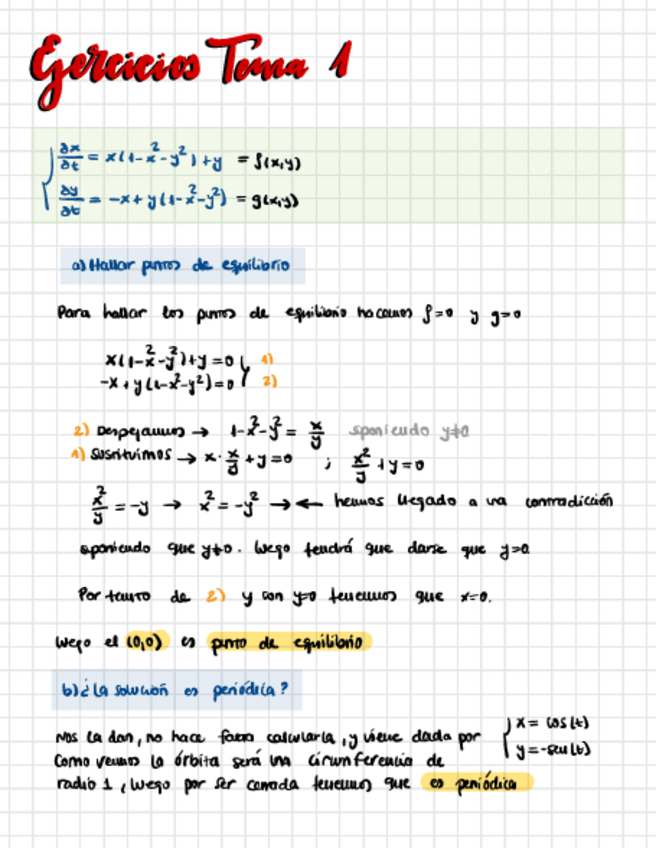 Ejercicios Tema 1
∂x/∂t = x(1-x²-y²)+y = f(x,y)
∂y/∂t = -x+y(1-x²-y²) = g(x,y)
a) Hallar puntos de equilibrio
Para hallar los puntos de equilibrio hacemos f=0 y g=0
x(1-x²-y²)+y=0 1)
-x+y(1-x²-y²)=0 2)
2) Despejamos → 1-x²-y² = x/y sponiendo y≠0
1) Sustituimos → x·x/y+y=0 ; x²/y+y=0
x²/y = -y → x² = -y² →← hemos llegado a una contradicción
sponiendo que y≠0. Luego tendrá que darse que y=0
Por tanto de 2) y con y=0 tenemos que x=0.
Luego el (0,0) es punto de equilibrio
b) ¿La solución es periódica?
Nos la dan, no hace falta calcularla, y viene dada por { x = cos(t)
y = -sen(t)
Como vemos la órbita será una circunferencia de
radio 1, luego por ser cerrada tenemos que es periódica